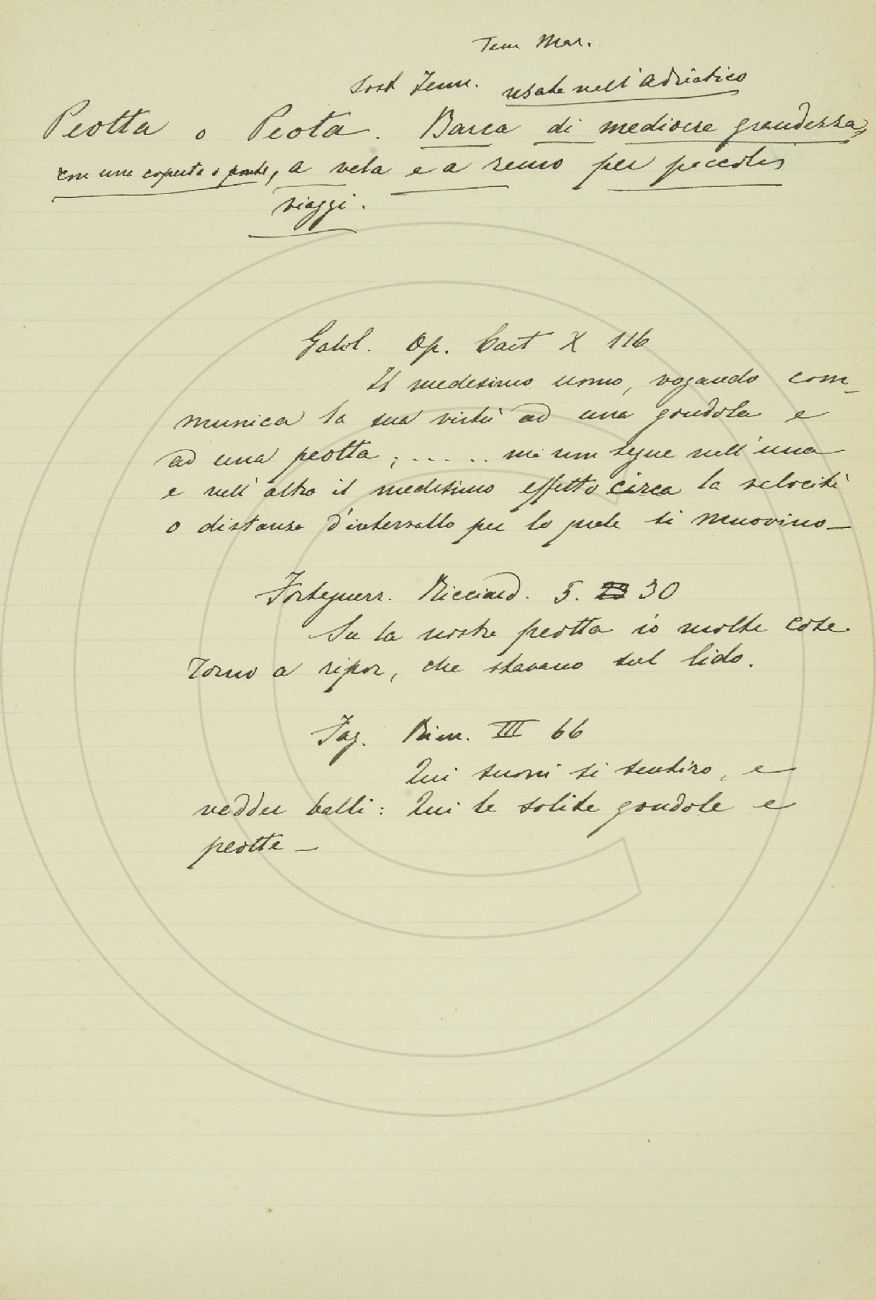 Term Mar.
Sost Femm. usata nell'Adriatico
Peotta o Peota. Barca di mediocre grandezza,
con una coperta o ponte, a vela e a remo per piccoli
viaggi.
Galil. Op. Lett X 116
Il medesimo uomo, vogando com-
munica la sua virtù ad una gondola e
ad una peotta; ..... ma non segue nell'una
e nell'altro il medesimo effetto circa la velocità
o distanza d'intervallo per lo quale si muovino—
Forteguerr. Ricciard. 5. 30
Su la nostra peotta io molte cose
Torno a ripor, che stavano sul lido.
Fag. Rim. III 66
Qui suoni si sentiro, e
vedder balli: Qui le solite gondole e
peotte—